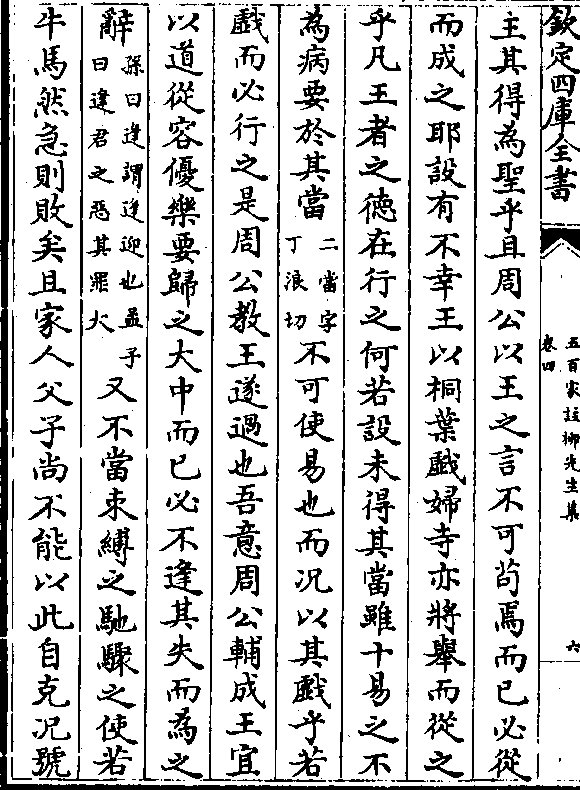 欽定四庫全書
五百家註柳先生集
卷四
六
主其得為聖乎且周公以王之言不可苟焉而已必從
而成之耶設有不幸王以桐葉戲婦寺亦將舉而從之
乎凡王者之德在行之何若設未得其當雖十易之不
為病要於其當二當字丁浪切不可使易也而况以其戲乎若
戲而必行之是周公教王遂過也吾意周公輔成王宜
以道從容優樂要歸之大中而已必不逢其失而為之
辭孫曰逢謂逢迎也孟子曰逢君之惡其罪大又不當束縛之馳驟之使若
牛馬然急則敗矣且家人父子尚不能以此自克况號